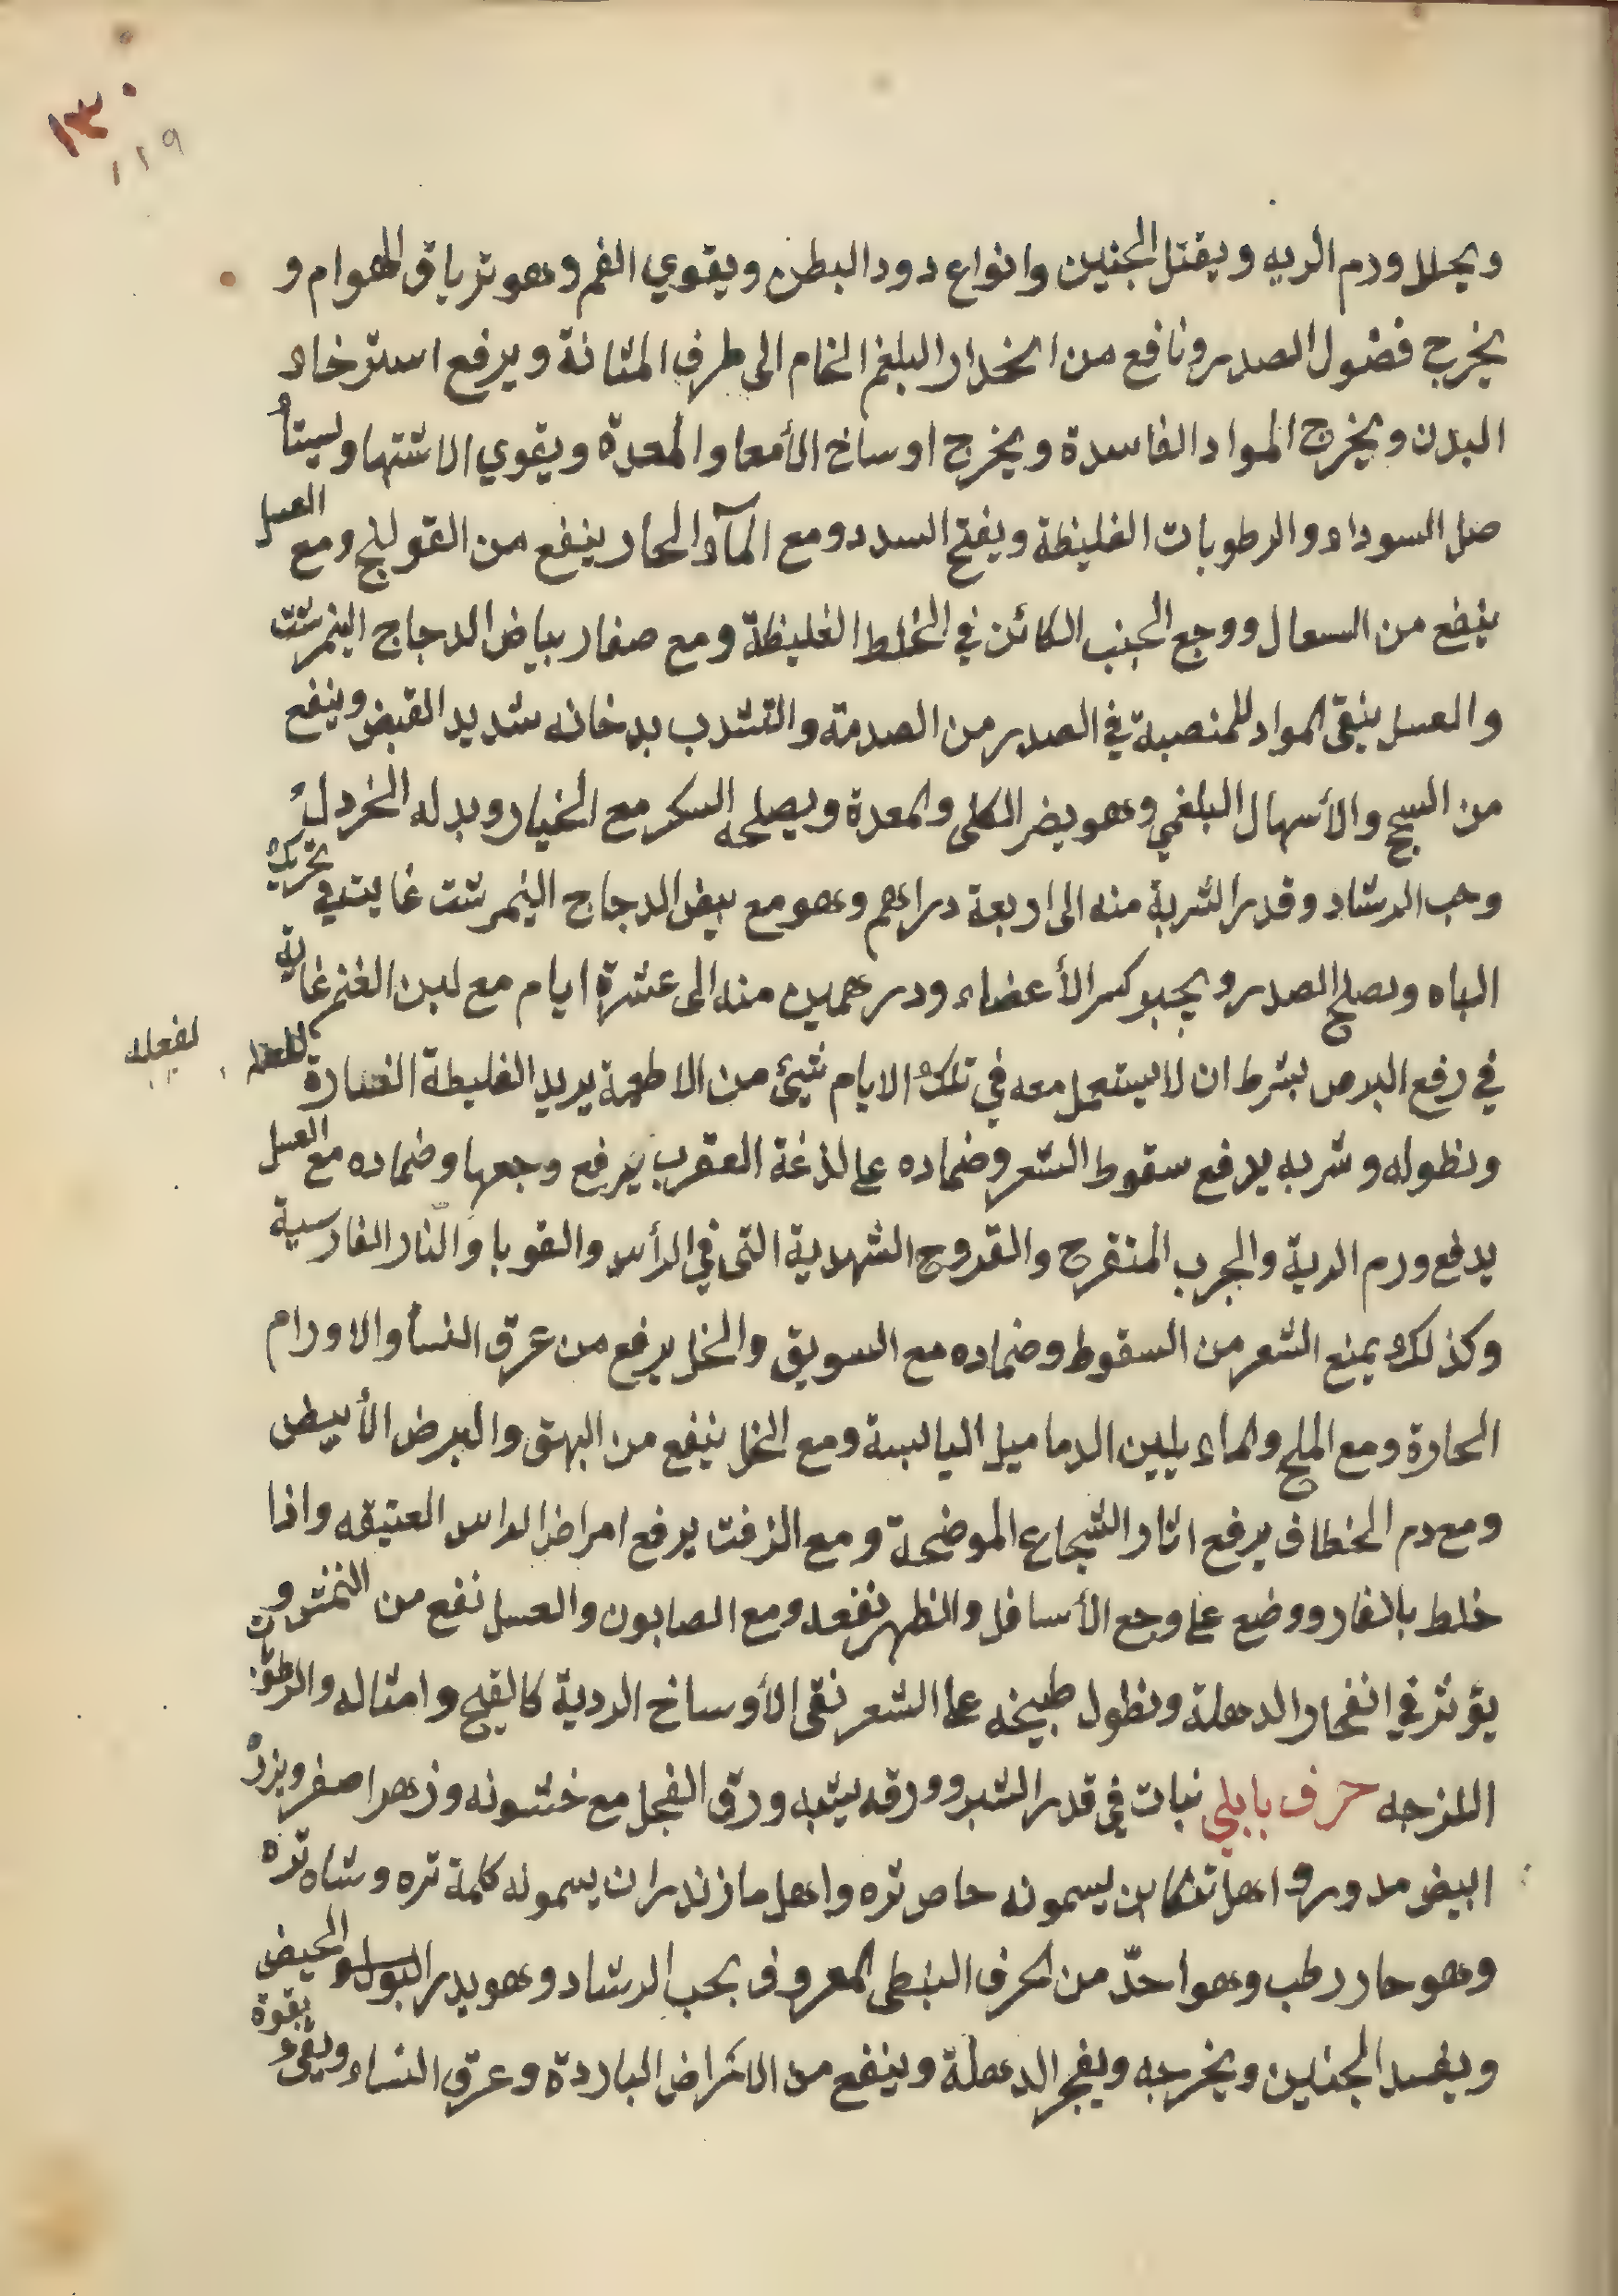 ١٣٠
١١٩
ويحلل ورم الريه ويقتل الجنين وانواع دود البطن ويقوي الفم وهو ترياق الهوام و
يخرج فضول الصدر ونافع من انحدار البلغم الخام الى طرف المثانة ويرفع استرخاء
البدن ويخرج المواد الفاسدة ويخرج اوساخ الأمعا والمعدة ويقوي الاشتها ويستأ
صل السوداء والرطوبات الغليظة ويفتح السدد ومع المآء الحار ينفع من القولنج ومع العسل
ينفع من السعال ووجع الجنب الكائن في الخلط الغليظة ومع صفار بياض الدجاج النيمرشت
والعسل ينقى المواد للمنصبة في الصدر من الصدمة والتشرب بدخانه شديد القبض وينفع
من السحج والأسهال البلغمي وهو يضر الكلى والمعدة ويصلحه السكر مع الخيار وبدله الخردل
وحب الرشاد وقدر الشربة منه الى اربعة دراهم وهو مع بيض الدجاج النيمرشت غايت في تحريك
الباه ويصلح الصدر ويجبر كسر الأعضاء ودرهمين منه الى عشرة ايام مع لبن الغنم غاية
في رفع البرص بشرط ان لا يستعمل معه في تلك الايام شيئ من الاطعمة يريد الغليظة الضارة
لفعله
ونطوله وشربه يرفع سقوط الشعر وضماده على لذغة العقرب يرفع وجعها وضماده مع العسل
يدفع ورم الرية والجرب المتقرح والقروح الشهدية التى في الرأس والقوبا والنار الفارسية
وكذلك يمنع الشعر من السقوط وضماده مع السويق والخل يرفع من عرق النسأ والاورام
الحارة ومع الملح والماء يلين الدماميل اليابسة ومع الخل ينفع من البهق والبرض الأبيض
ومع دم الخطاف يرفع اثار الشجاع الموضحة ومع الزفت يرفع امراض الراس العتيقه واذا
خلط بالغار ووضع على وجع الأسافل والظهر نفعه ومع الصابون والعسل نفع من النمش و
يؤثر في انفجار الدهلة ونطول طبيخه على الشعر نقى الأوساخ الردية كالقيح وامثاله والرطوبات
اللزجه حرف بابلي نبات في قدر الشبر وورقه يشبه ورق الفجل مع خشونه وزهر اصفر وبزر
ابيض مدور واهل تنكابن يسمونه خاص تره واهل مازندران يسمونه كلمة تره وشاه تره
وهو حار رطب وهو احدّ من الحرف النبطى المعروف بحب الرشاد وهو يدر البول والحيض
ويفسد الجنين ويخرجه ويفجر الدهلة وينفع من الأمراض الباردة وعرق النساء ويقيء بقوة